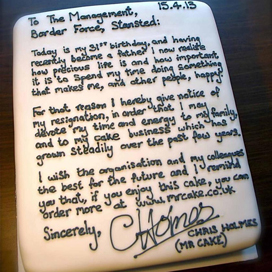 To The Management, 15.4.13
Border Force, Stansted:
Today is my 31st birthday, and having
recently become a father, I now realise
how precious life is and how important
it is to spend my time doing something
that makes me, and other people, happy.
For that reason I hereby give notice of
my resignation, in order that I may
devote my time and energy to my family,
and to my cake business which has
grown steadily over the past few years.
I wish the organisation and my colleagues
the best for the future and I remind
you that, if you enjoy this cake, you can
order more at www.mrcake.co.uk
Sincerely, CHolmes
CHRIS HOLMES
(MR CAKE)